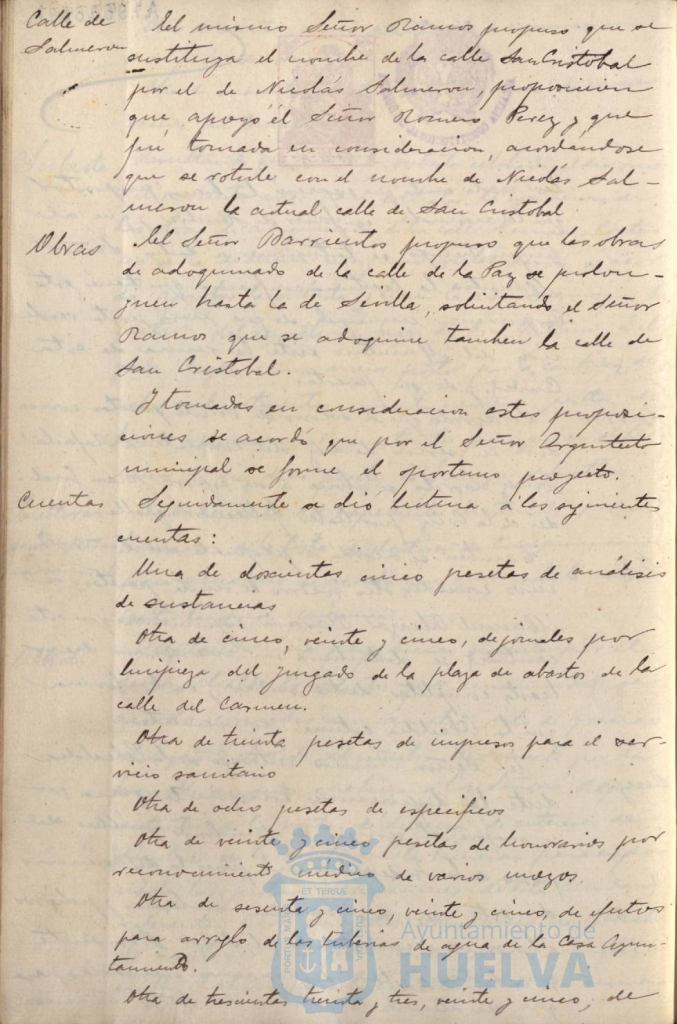 Calle de
Salmeron
El mismo Señor Ramos propuso que se
sustituya el nombre de la calle San Cristobal
por el de Nicolás Salmeron, proposicion
que apoyó el Señor Romero Perez y que
fué tomada en consideracion, acordándose
que se rotule con el nombre de Nicolás Sal-
meron la actual calle de San Cristobal.
Obras
El Señor Barrientos propuso que las obras
de adoquinado de la calle de la Paz se prolon-
guen hasta la de Sevilla, solicitando el Señor
Ramos que se adoquine tambien la calle de
San Cristobal.
Y tomadas en consideracion estas proposi-
ciones se acordó que por el Señor Arquitecto
municipal se forme el oportuno proyecto.
Cuentas
Seguidamente se dió lectura á las siguientes
cuentas:
Una de doscientas cinco pesetas de análisis
de sustancias
Otra de cinco, veinte y cinco, de jornales por
limpieza del juzgado de la plaza de abastos de la
calle del Carmen.
Otra de treinta pesetas de impresos para el ser-
vicio sanitario
Otra de ocho pesetas de especificos
Otra de veinte y cinco pesetas de honorarios por
reconocimiento médico de varios mozos.
Otra de sesenta y cinco, veinte y cinco, de efectos
para arreglo de las tuberias de agua de la Casa Ayun-
tamiento.
Otra de trescientas treinta y tres, veinte y cinco, de
ET TERRÆ
Ayuntamiento de
HUELVA